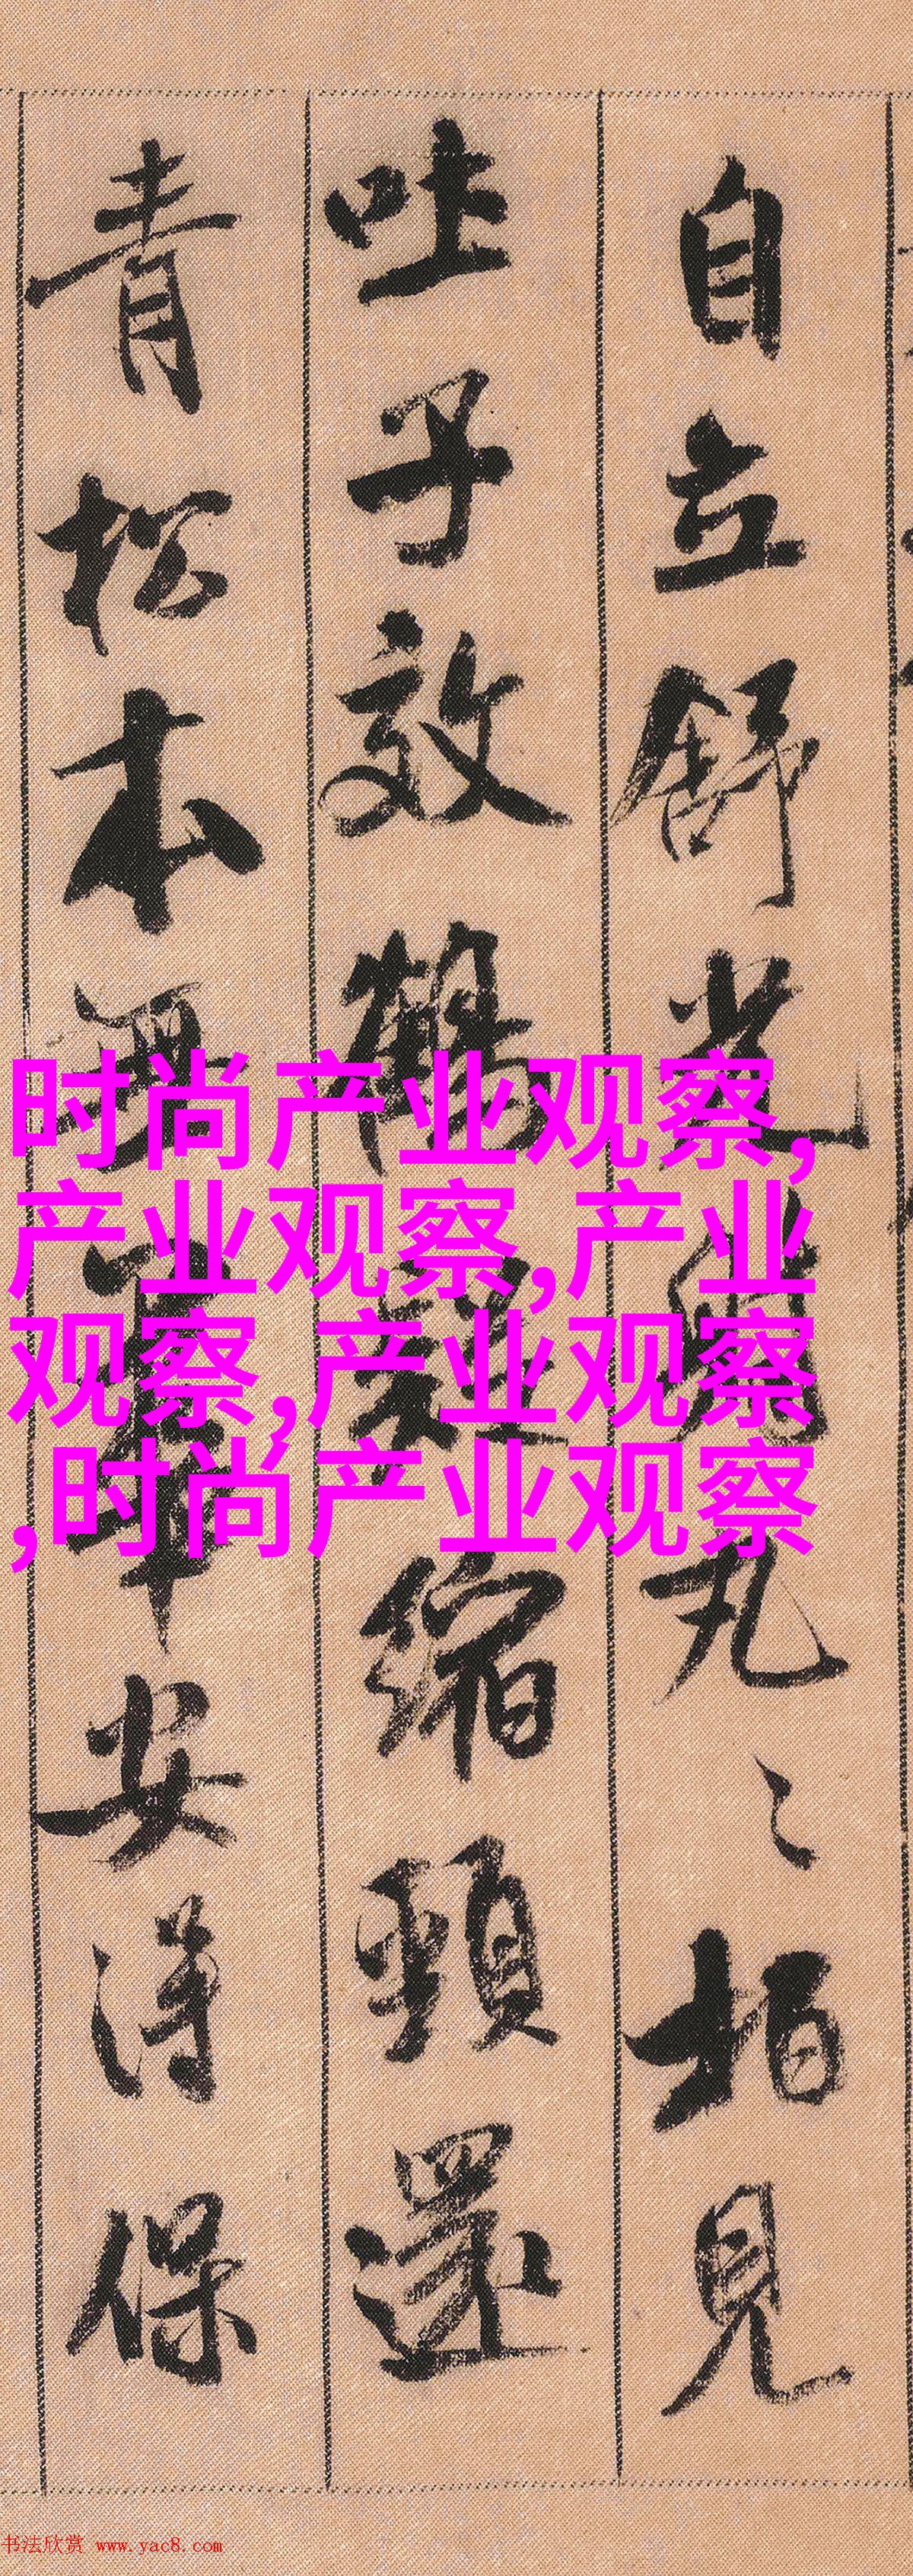 自立舒光射丸〻柏見
吐子效鶴疑縮頸還
青松本無華安得保
时尚产业观察,
产业观察,产业
观察,产业观察
,时尚产业观察
书法欣赏 www.yac8.com